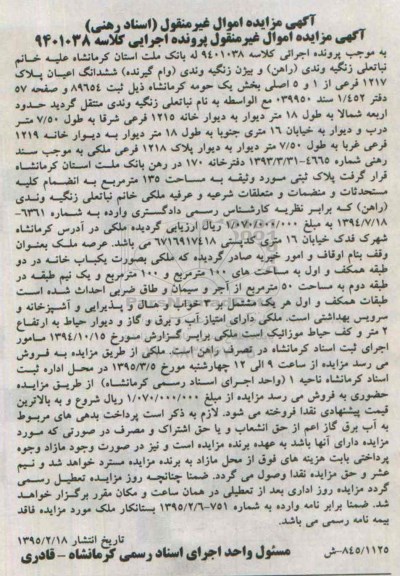 آگهی مزایده اموال غیرمنقول (اسناد رهنی)
آگهی مزایده اموال غیرمنقول پرونده اجرایی کلاسه ۹۴۰۱۰۳۸
به موجب پرونده اجرائی کلاسه ۹۴۰۱۰۳۸ له بانک ملت استان کرمانشاه علیه خانم
نباتعلی زنگیه وندی (راهن) و بیژن زنگیه وندی (وام گیرنده) ششدانگ اعیان پلاک
۱۲۱۷ فرعی از ۱ و ۵ اصلی بخش یک حومه کرمانشاه ذیل ثبت ۸۹۶۵۴ و صفحه ۵۷
دفتر ۱/۴۵۲ سند ۰۳۹۹۵۰ مع الواسطه به نام نباتعلی زنگیه وندی منتقل گردید حدود
اربعه شمالا به طول ۱۸ متر دیوار به دیوار خانه ۱۲۱۵ فرعی شرقا به طول ۷/۵۰ متر
درب و دیوار به خیابان ۱۶ متری جنوبا به طول ۱۸ متر دیوار به دیوار خانه ۱۲۱۹
فرعی غربا به طول ۷/۵۰ متر دیوار به دیوار پلاک ۱۲۱۸ فرعی ملکی به موجب سند
رهنی شماره ۴۶۶۵-۱۳۹۳/۳/۳۱ دفترخانه ۱۷۰ در رهن بانک ملت استان کرمانشاه
قرار گرفت پلاک ثبتی مورد وثیقه به مساحت ۱۳۵ مترمربع به انضمام کلیه
مستحدثات و منضمات و متعلقات شرعیه و عرفیه ملکی خانم نباتعلی زنگیه وندی
(راهن) که برابر نظریه کارشناس رسمی دادگستری وارده به شماره ۶۳۶۱-
۱۳۹۴/۷/۱۸ به مبلغ ۱/۰۷۰/۰۰۰/۰۰۰ ریال ارزیابی گردیده ملکی در آدرس کرمانشاه
شهرک فدک خیابان ۱۶ متری کدپستی ۶۷۱۶۹۱۷۴۱۸ می باشد. عرصه ملک بعنوان
وقف بنام اوقاف و امور خیریه صادر گردیده که ملکی بصورت یکباب خانه در دو
طبقه همکف و اول به مساحت های ۱۰۰ مترمربع و ۱۰۰ مترمربع و یک نیم طبقه در
طبقه دوم به مساحت ۵۰ مترمربع از آجر و سیمان و طاق ضربی احداث شده است
طبقات همکف و اول هر یک مشتمل بر ۳ خواب و هال و پذیرایی و آشپزخانه و
سرویس بهداشتی است. ملکی دارای امتیاز آب و برق و گاز و دیوار حیاط به ارتفاع
۲ متر و کف حیاط موزائیک است ملکی برابر گزارش مورخ ۱۳۹۴/۱۰/۱۵ مامور
اجرای ثبت اسناد کرمانشاه در تصرف راهن است. ملکی از طریق مزایده به فروش
می رسد مزایده از ساعت ۹ الی ۱۲ چهارشنبه مورخ ۱۳۹۵/۳/۵ در محل اداره ثبت
اسناد کرمانشاه ناحیه ۱ (واحد اجرای اسناد رسمی کرمانشاه) از طریق مزایده
حضوری به فروش می رسد مزایده از مبلغ ۱/۰۷۰/۰۰۰/۰۰۰ ریال شروع و به بالاترین
قیمت پیشنهادی نقدا فروخته می شود. لازم به ذکر است پرداخت بدهی های مربوط
به آب برق گاز اعم از حق انشعاب و یا حق اشتراک و مصرف در صورتی که مورد
مزایده دارای آنها باشد به عهده برنده مزایده است و نیز در صورت وجود مازاد وجوه
پرداختی بابت هزینه های فوق از محل مازاد به برنده مزایده مسترد خواهد شد و نیم
عشر و حق مزایده نقدا وصول می گردد. ضمنا چنانچه روز مزایده تعطیل رسمی
گردد مزایده روز اداری بعد از تعطیلی در همان ساعت و مکان مقرر برگزار خواهد
شد. ضمنا برابر نامه وارده به شماره ۷۵۱-۱۳۹۵/۲/۶ بستانکار ملک مورد مزایده فاقد
بیمه نامه رسمی می باشد.
تاریخ انتشار ۱۳۹۵/۲/۱۸
۸۴۵/۱۱۲۵-ش مسئول واحد اجرای اسناد رسمی کرمانشاه - قادری